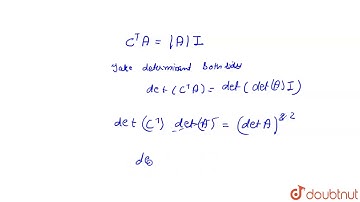 CᵀA = |A| I
Take determinant both sides
det (CᵀA) = det (det(A) I)
det (Cᵀ) det(A) = (det A)
de
doubtnut